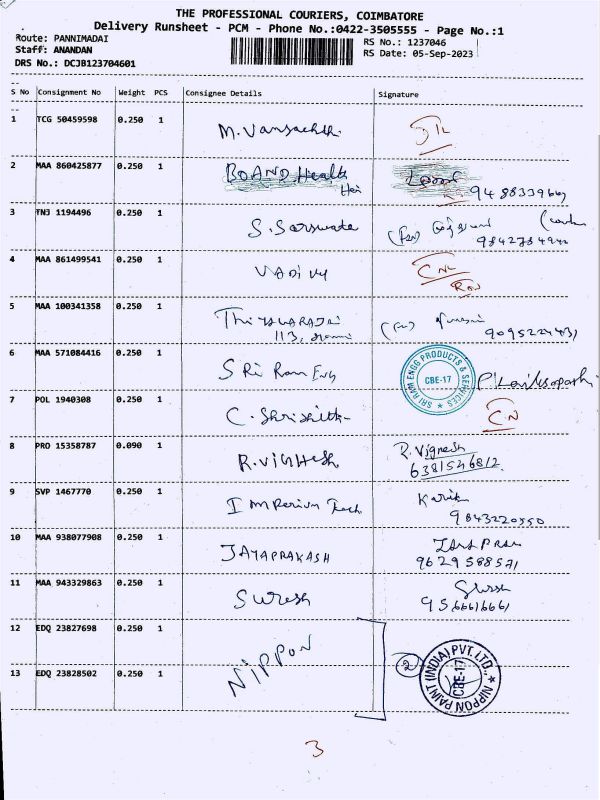 THE PROFESSIONAL COURIERS, COIMBATORE
Delivery Runsheet - PCM - Phone No.:0422-3505555 - Page No.:1
Route: PANNIMADAI
Staff: ANANDAN
DRS No.: DCJB123704601
RS No.: 1237046
RS Date: 05-Sep-2023
S No Consignment No Weight PCS Consignee Details Signature
1 TCG 50459598 0.250 1 M.
2 MAA 860425877 0.250 1 BOAND Health
9488339669
3 TNJ 1194496 0.250 1 S. Sarswate
4 MAA 861499541 0.250 1 VADIVU
5 MAA 100341358 0.250 1
113,
6 MAA 571084416 0.250 1 SRi Ram Eng
SRI RAM ENGG PRODUCTS & SERVICES
CBE-17
7 POL 1940308 0.250 1 C. CN
8 PRO 15358787 0.090 1 R. VIGHESH R. Vignesh
6381546812
9 SVP 1467770 0.250 1 Karik
9843220550
10 MAA 938077908 0.250 1 JAYAPRAKASH
9629588571
11 MAA 943329863 0.250 1 Suresh
9566616661
12 EDQ 23827698 0.250 1 NIPPON
2
NIPPON PAINT (INDIA) PVT. LTD.,
CBE-17
13 EDQ 23828502 0.250 1
3